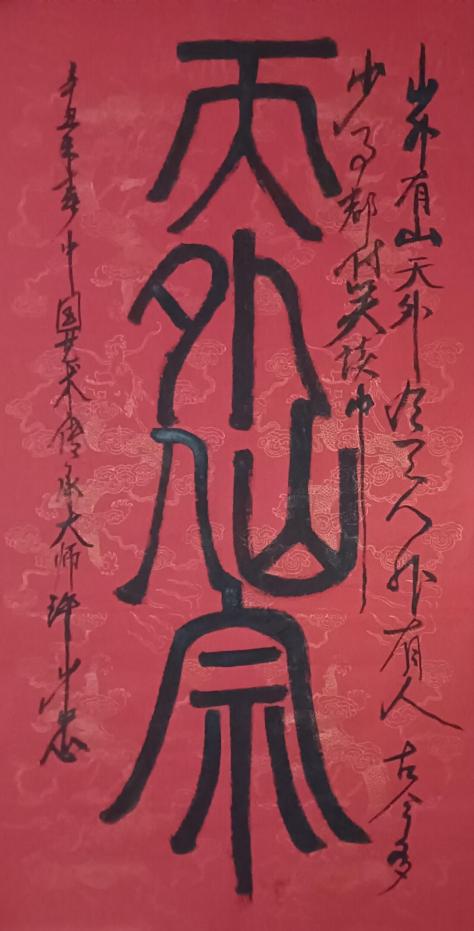 山外有山天外有天人外有人古今多
少事都付笑谈中
天外仙宗
辛丑年春中国艺术传承大师许